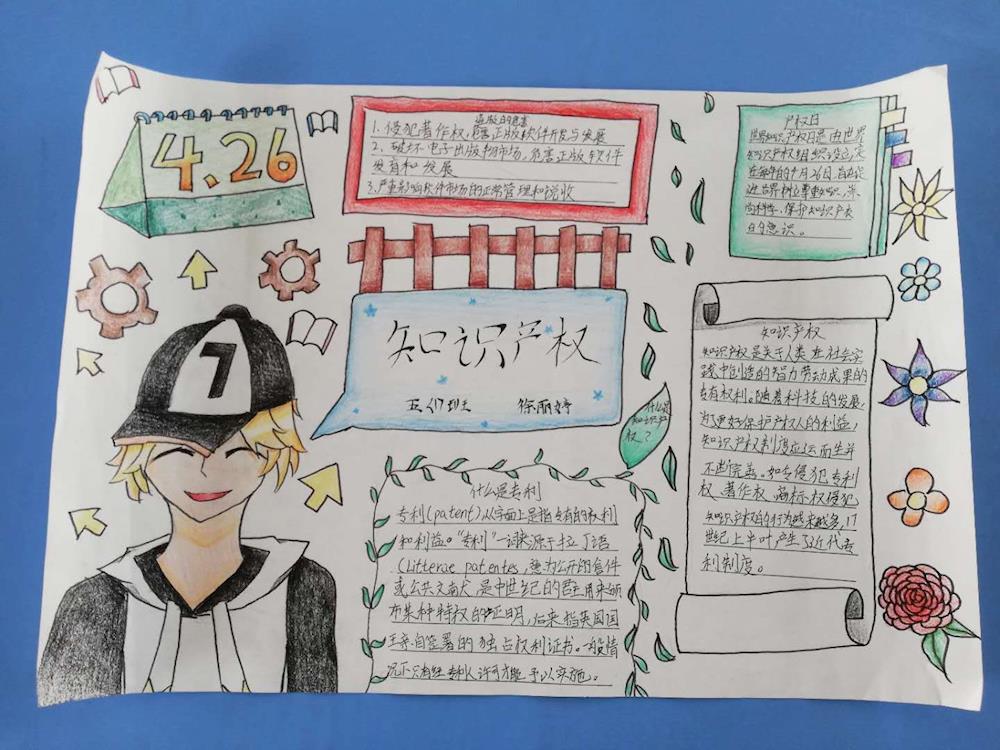 4.26
盗版的危害
1.侵犯著作权,危害正版软件开发与发展
2、破坏电子出版物市场,危害正版软件
发育和发展
3.严重影响软件市场的正常管理和税收
产权日
世界知识产权日是由世界
知识产权组织设立,定
在每年的4月26日,旨在促
进世界树立尊重知识,崇
尚科学、保护知识产权
的意识。
7
知识产权
五(7)班 徐丽婷
什么是
知识产
权?
知识产权
知识产权是关于人类在社会实
践中创造的智力劳动成果的
专有权利。随着科技的发展,
为了更好保护产权人的利益,
知识产权制度应运而生并
不断完善。如今侵犯专利
权、著作权、商标权侵犯
知识产权的行为越来越多,17
世纪上半叶产生了近代专
利制度。
什么是专利
专利(patent)从字面上是指专有的权利
和利益。“专利”一词来源于拉丁语
(Litterae patentes,意为公开的信件
或公共文献,是中世纪的君主用来颁
布某种特权的证明,后来指英国国
王亲自签署的独占权利证书。一般情
况下只有经专利人许可才能予以实施。